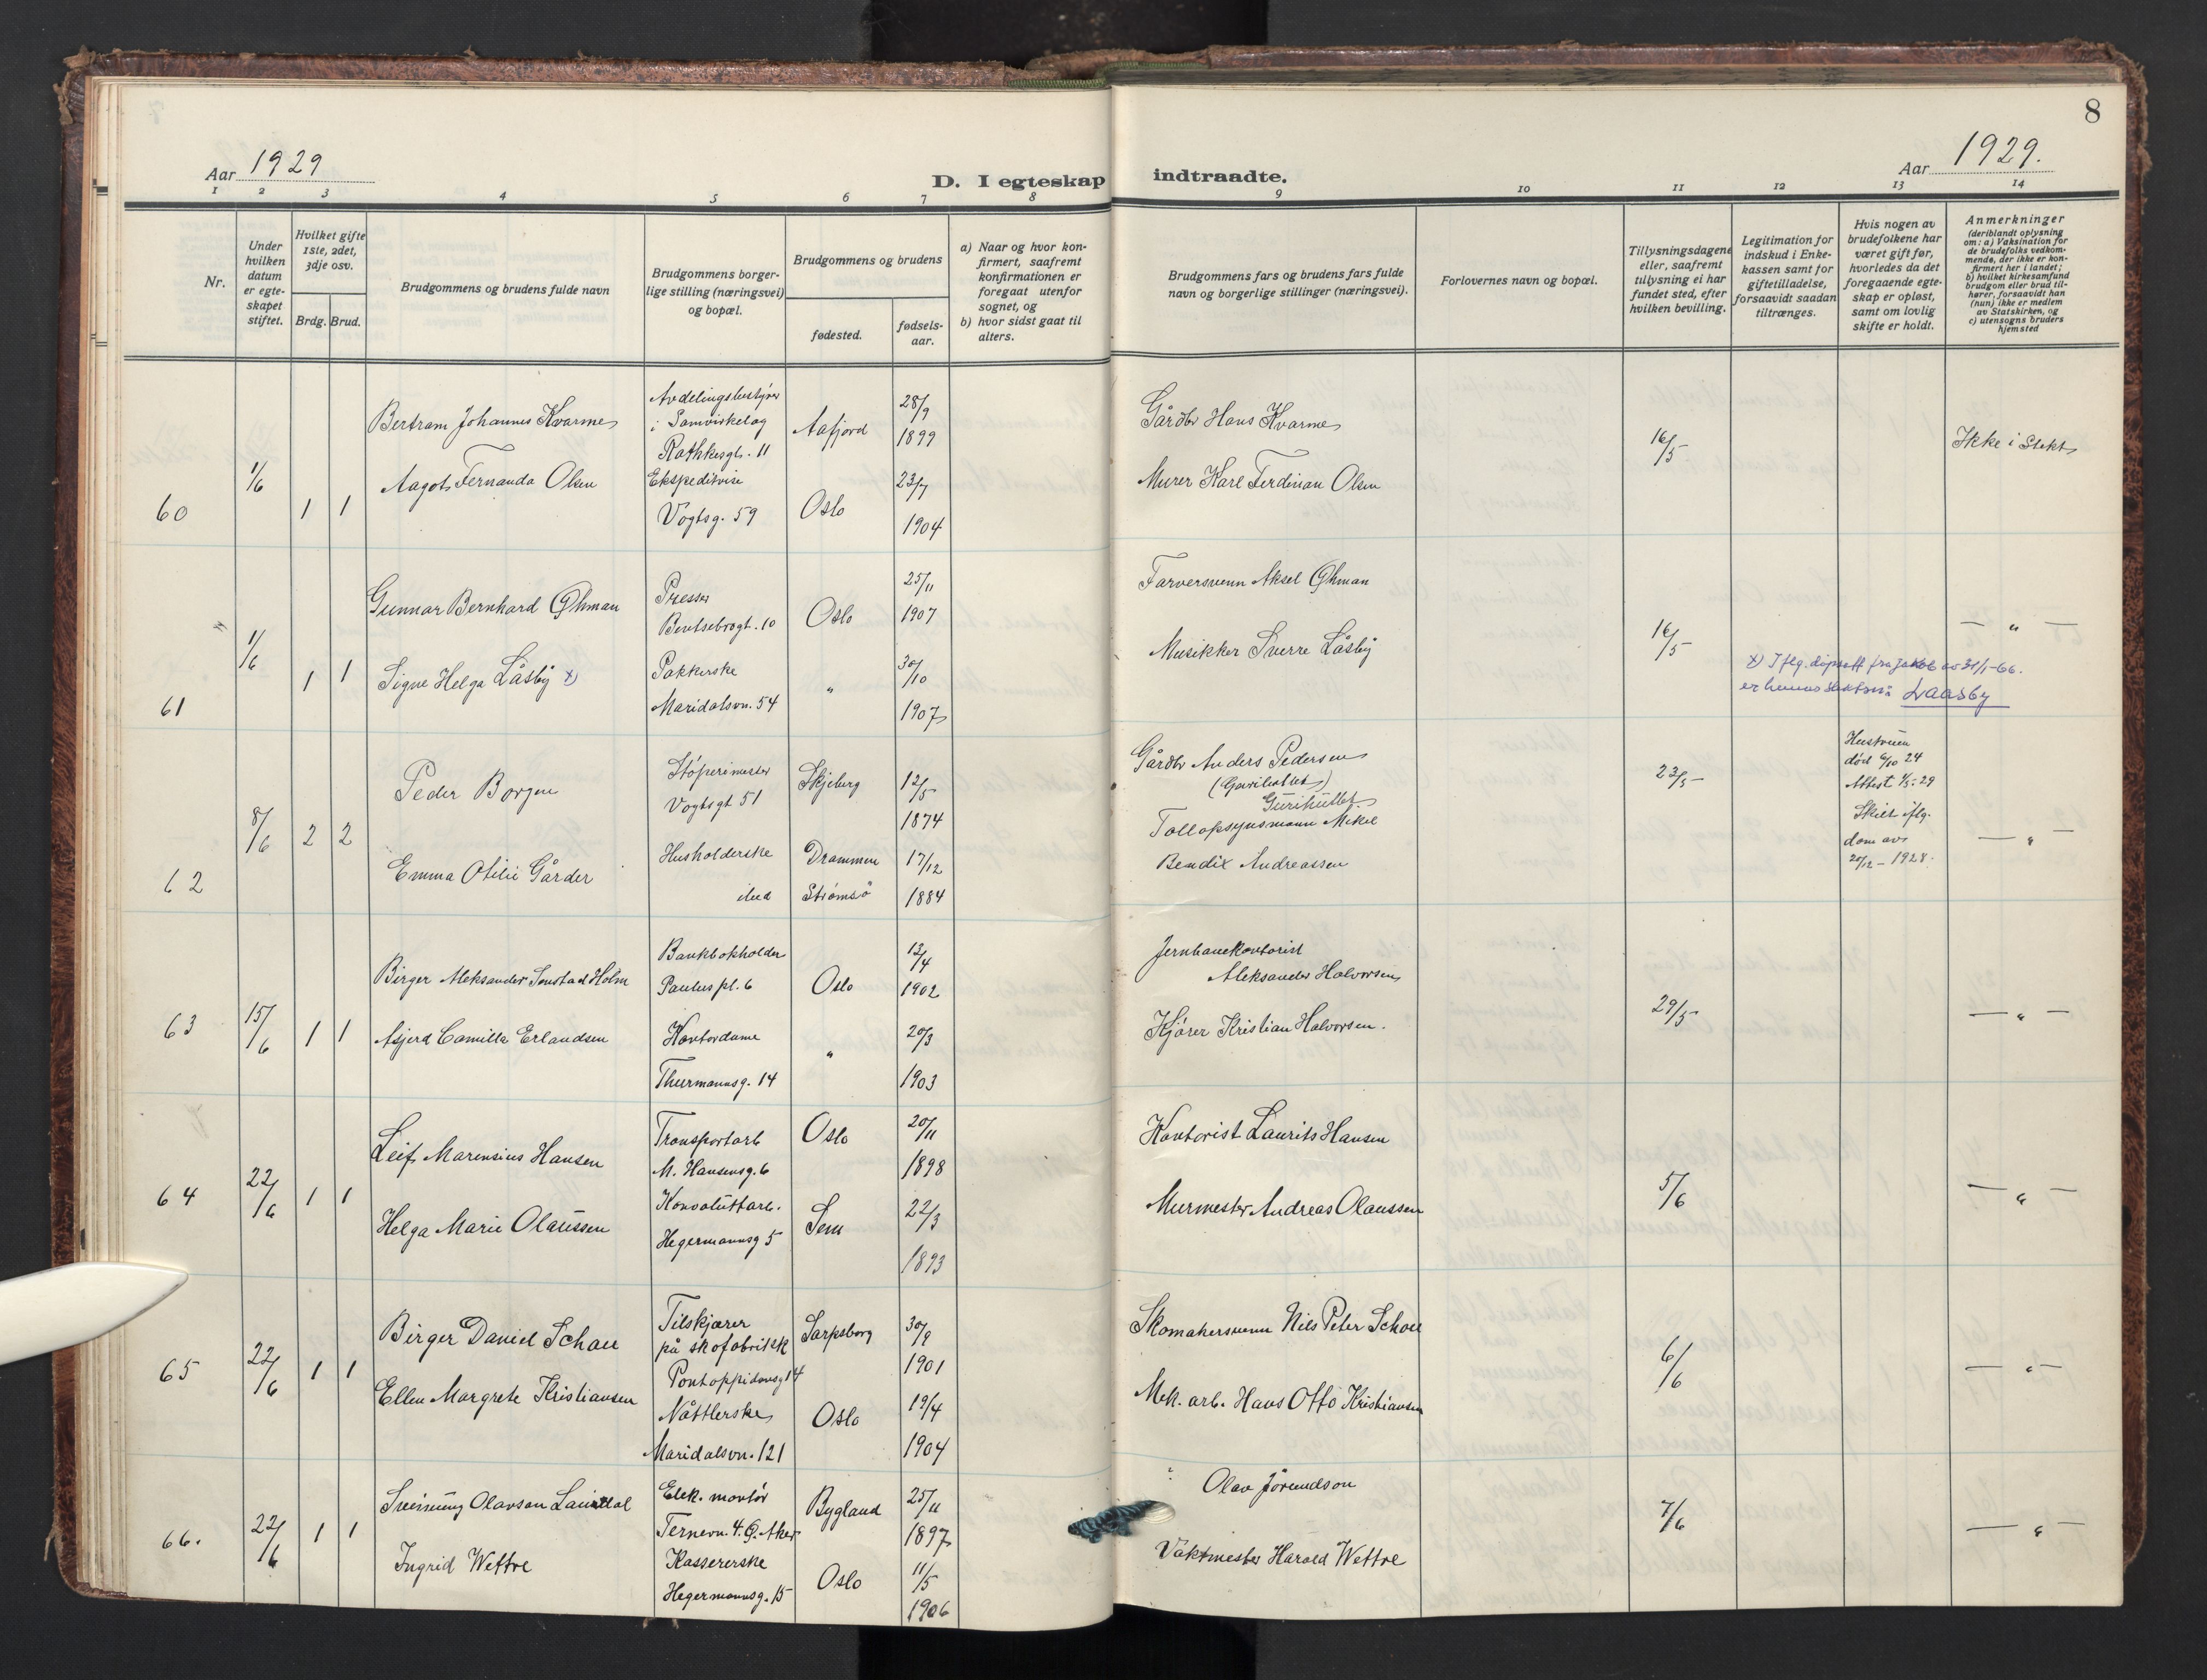 8
Aar 1929
D. I egteskap indtraadte.
Aar 1929.
1 2 3 4 5 6 7 8 9 10 11 12 13 14
Nr.
Under
hvilken
datum
er egte-
skapet
stiftet.
Hvilket gifte
1ste, 2det,
3dje osv.
Brdg. Brud.
Brudgommens og brudens fulde navn
Brudgommens borger-
lige stilling (næringsvei)
og bopæl.
Brudgommens og brudens
fødested.
fødsels-
aar.
a) Naar og hvor kon-
firmert, saafremt
konfirmationen er
foregaat utenfor
sognet, og
b) hvor sidst gaat til
alters.
Brudgommens fars og brudens fars fulde
navn og borgerlige stillinger (næringsvei).
Forlovernes navn og bopæl.
Tillysningsdagene
eller, saafremt
tillysning ei har
fundet sted, efter
hvilken bevilling.
Legitimation for
indskud i Enke-
kassen samt for
giftetilladelse,
forsaavidt saadan
tiltrænges.
Hvis nogen av
brudefolkene har
været gift før,
hvorledes da det
foregaaende egte-
skap er opløst,
samt om lovlig
skifte er holdt.
Anmerkninger
(deriblandt oplysning
om: a) Vaksination for
de brudefolks vedkom-
mende, der ikke er kon-
firmert her i landet;
b) hvilket kirkesamfund
brudgom eller brud til-
hører, forsaavidt han
(hun) ikke er medlem
av Statskirken, og
c) utensogns bruders
hjemsted
60
1/6
1 1
Bertram Johannes Kvarme
Aagot Fernanda Olsen
Avdelingsbestyrer
i Samvirkelag
Rathkesgt. 11
Ekspeditrise
Vogtsg. 59
Aafjord
Oslo
28/9
1899
23/7
1904
Gårdbr Hans Kvarme
Murer Karl Ferdinan Olsen
16/5
Ikke i Slekt
61
1/6
1 1
Gunnar Bernhard Øhman
Signe Helga Låsby x)
Presser
Bentsebrogt. 10
Pakkerske
Maridalsvn. 54
Oslo
"
25/11
1907
30/10
1907
Farversvenn Aksel Øhman
Musikker Sverre Låsby
16/5
— " —
x) Iflg. dåpsatt fra Jakob av 31/1-66.
er hennes slektsn: Laasby
62
8/6
2 2
Peder Borgen
Emma Otilie Gårder
Støperimester
Vogtsgt 51
Husholderske
ibid
Skjeberg
Drammen
Strømsø
12/5
1874
17/12
1884
Gårdbr Anders Pedersen
Gurihullet
Tollopsynsmann Mikal
Bendix Andreassen
23/5
Hustruen
død 6/10 24
Attest 1/5-29
Skilt iflg.
dom av
20/12 – 1928.
— " —
63
15/6
1 1
Birger Aleksander Sonstad Holm
Asjerd Camilla Erlandsen
Bankbokholder
Paulus pl. 6
Kontordame
Thurmannsg. 14
Oslo
"
12/4
1902
20/3
1903
Jernbanekontorist
Aleksander Halvorsen
Kjører Kristian Halvorsen.
29/5
— " —
64
22/6
1 1
Leif Marensius Hansen
Helga Marie Olaussen
Transportarb
M. Hansensg. 6
Konvoluttarb.
Hegermannsg 5
Oslo
Sem
20/11
1898
22/3
1893
Kontorist Laurits Hansen
Murmester Andreas Olaussen
5/6
— " —
65
22/6
1 1
Birger Daniel Schau
Ellen Margrete Kristiansen
Tilskjærer
på skofabrikk
Pontoppidansg 14
Nåttlerske
Maridalsvn. 121
Sarpsborg
Oslo
30/9
1901
19/4
1904
Skomakersvenn Nils Peter Schau
Mek. arb. Hans Otto Kristiansen
6/6
— " —
66.
22/6
1 1
Sveinung Olavson Lauvdal
Ingrid Wettre
Elek. montør
Ternevn. 4. Ø. Aker
Kassererske
Hegermannsg. 15
Bygland
Oslo
25/11
1897
11/5
1906
Olav Jørundson
Vaktmester Harald Wettre
7/6
— " —